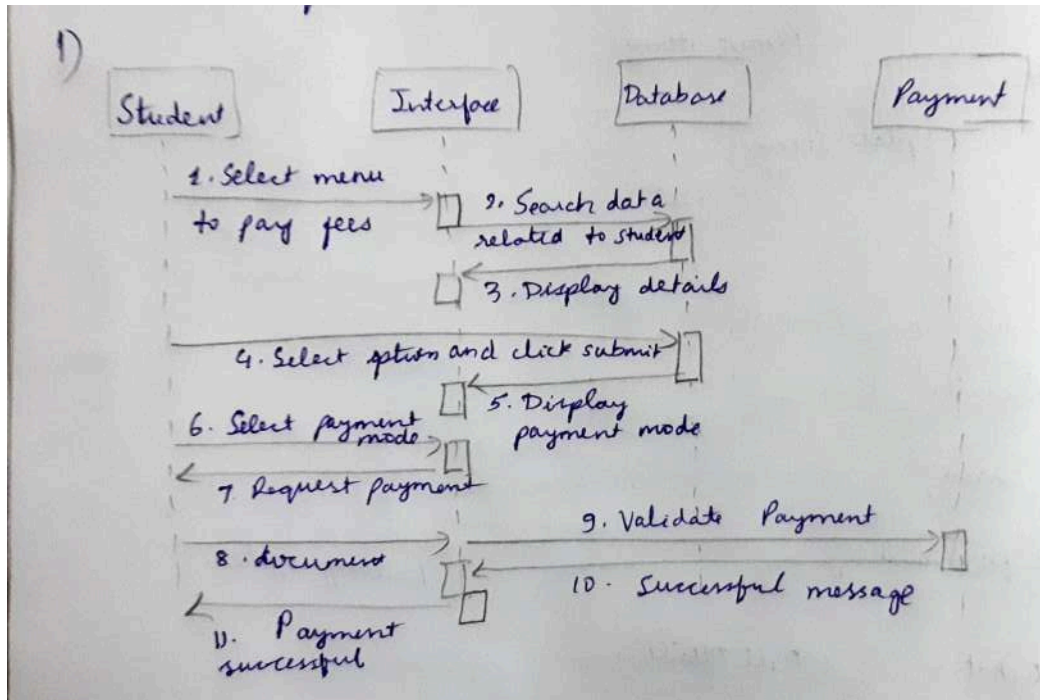 1)
Student
Interface
Database
Payment
1. Select menu
to pay fees
2. Search data
related to student
3. Display details
4. Select option and click submit
5. Display
payment mode
6. Select payment
mode
7 Request payment
8. document
9. Validate Payment
10. Successful message
11. Payment
successful